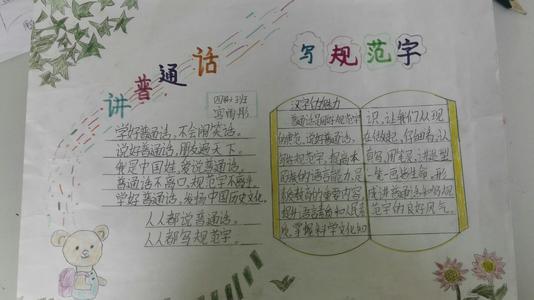 讲普通话
写规范字
四年3班
学好普通话,不会闹笑话。
说好普通话,朋友遍天下。
我是中国娃,爱说普通话。
普通话不离口,规范字不离手。
学好普通话,发扬中国历史文化。
人人都说普通话。
人人都写规范字。
汉字的魅力
普通话是用规范字
的典范,说好普通话,
写好规范字,提高
的语言能力,是
素质教育的重要内容,
提升语言素质和人民素
质,掌握科学文化知
识,让我们从现
在做起,仔细看,认
形成讲普通话和写规
范字的良好风气。